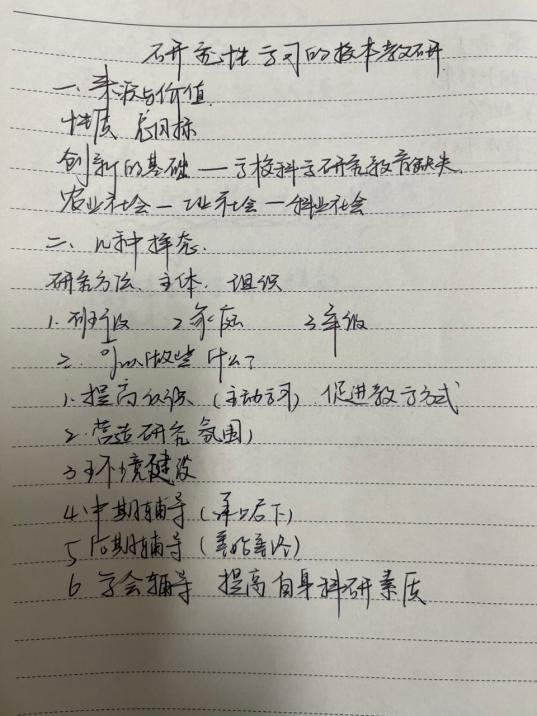 研究性学习的校本教研
一、来源与价值
性质 总目标
创新的基础——学校科学研究教育缺失
农业社会—工业社会—科业社会
二、几种样态.
研究方法、主体、组织
1.班级 2家庭 3年级
三、可以做些什么?
1.提高认识(主动学习) 促进教学方式
2.营造研究氛围)
3环境建设
4.中期辅导(承上启下)
5后期辅导(善始善终)
6 学会辅导 提高自身科研素质